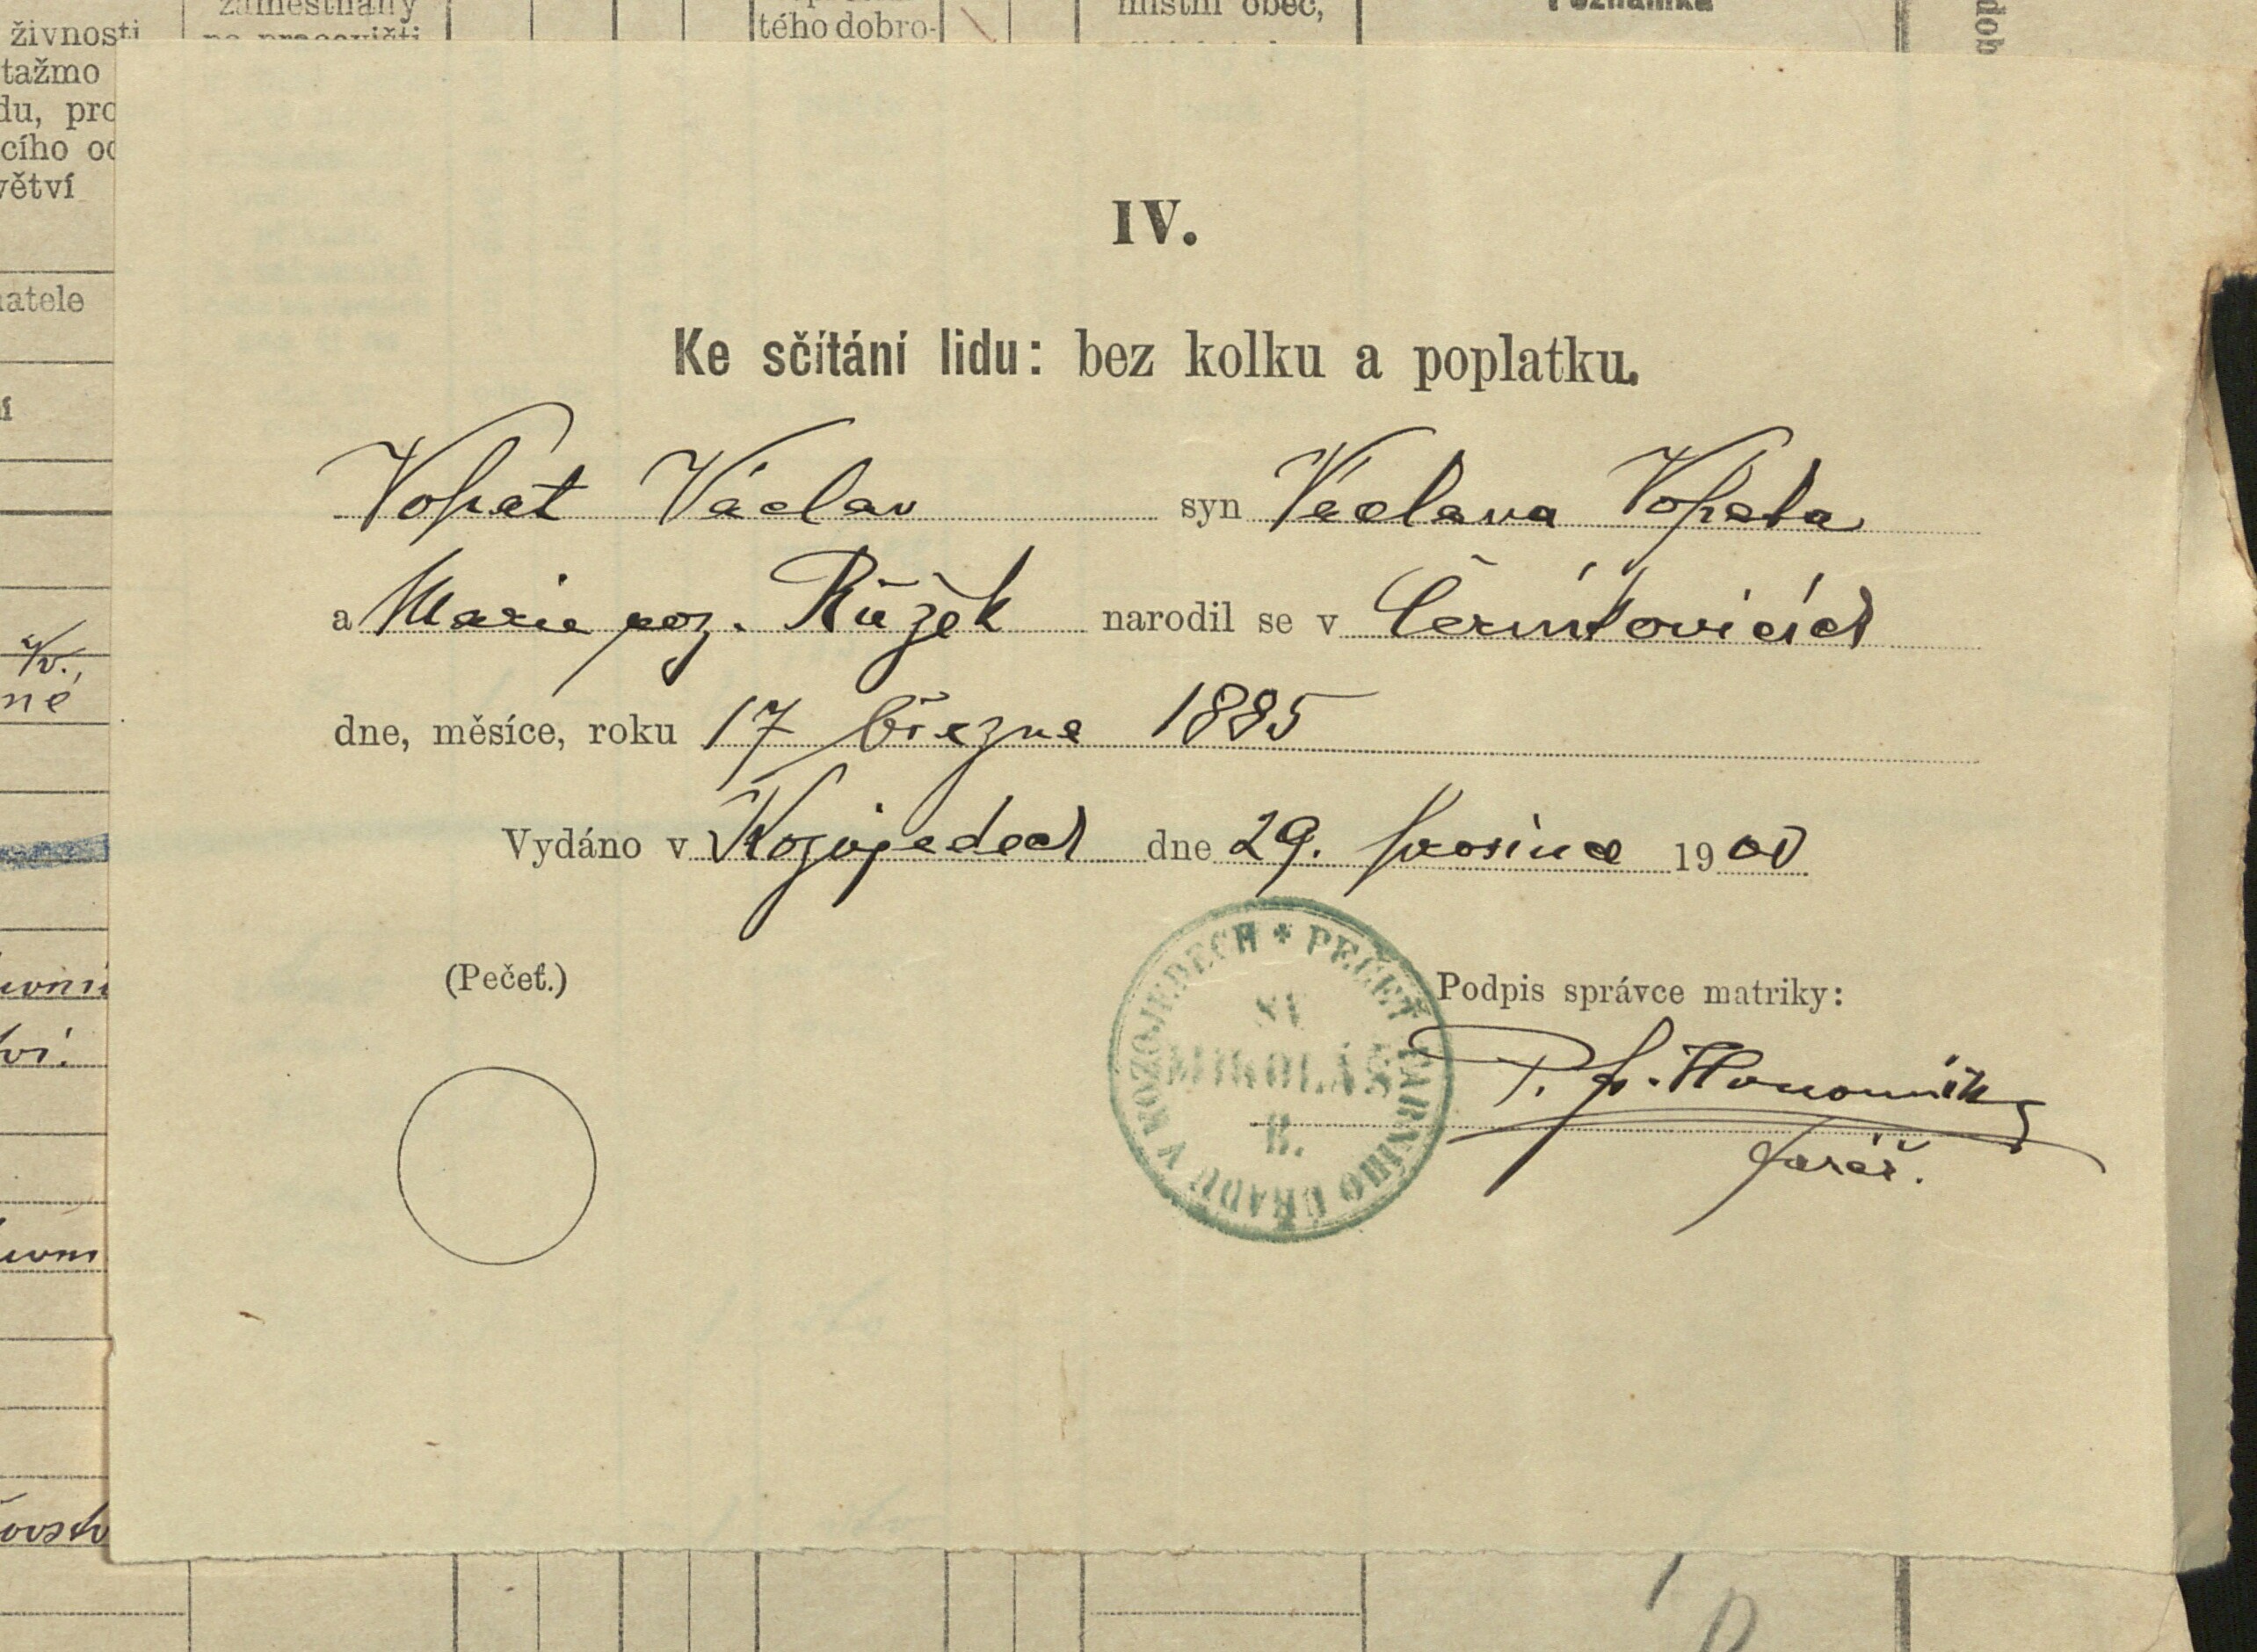 zaměstnány
tého dobro-
místní obec,
Poznámka
dob
živnosti
tažmo
du, pro
cího od
větví
atele
né
IV.
Ke sčítání lidu: bez kolku a poplatku.
Vopat Václav syn Václava Vopata
a Marie roz. Růžek narodil se v Černíkovicích
dne, měsíce, roku 17 března 1885
Vydáno v Kozojedech dne 29. prosince 1900
(Pečeť.)
Podpis správce matriky:
farář.
PEČEŤ FARNÍHO ÚŘADU V KOZOJEDECH
SV
MIKOLÁŠ
B.